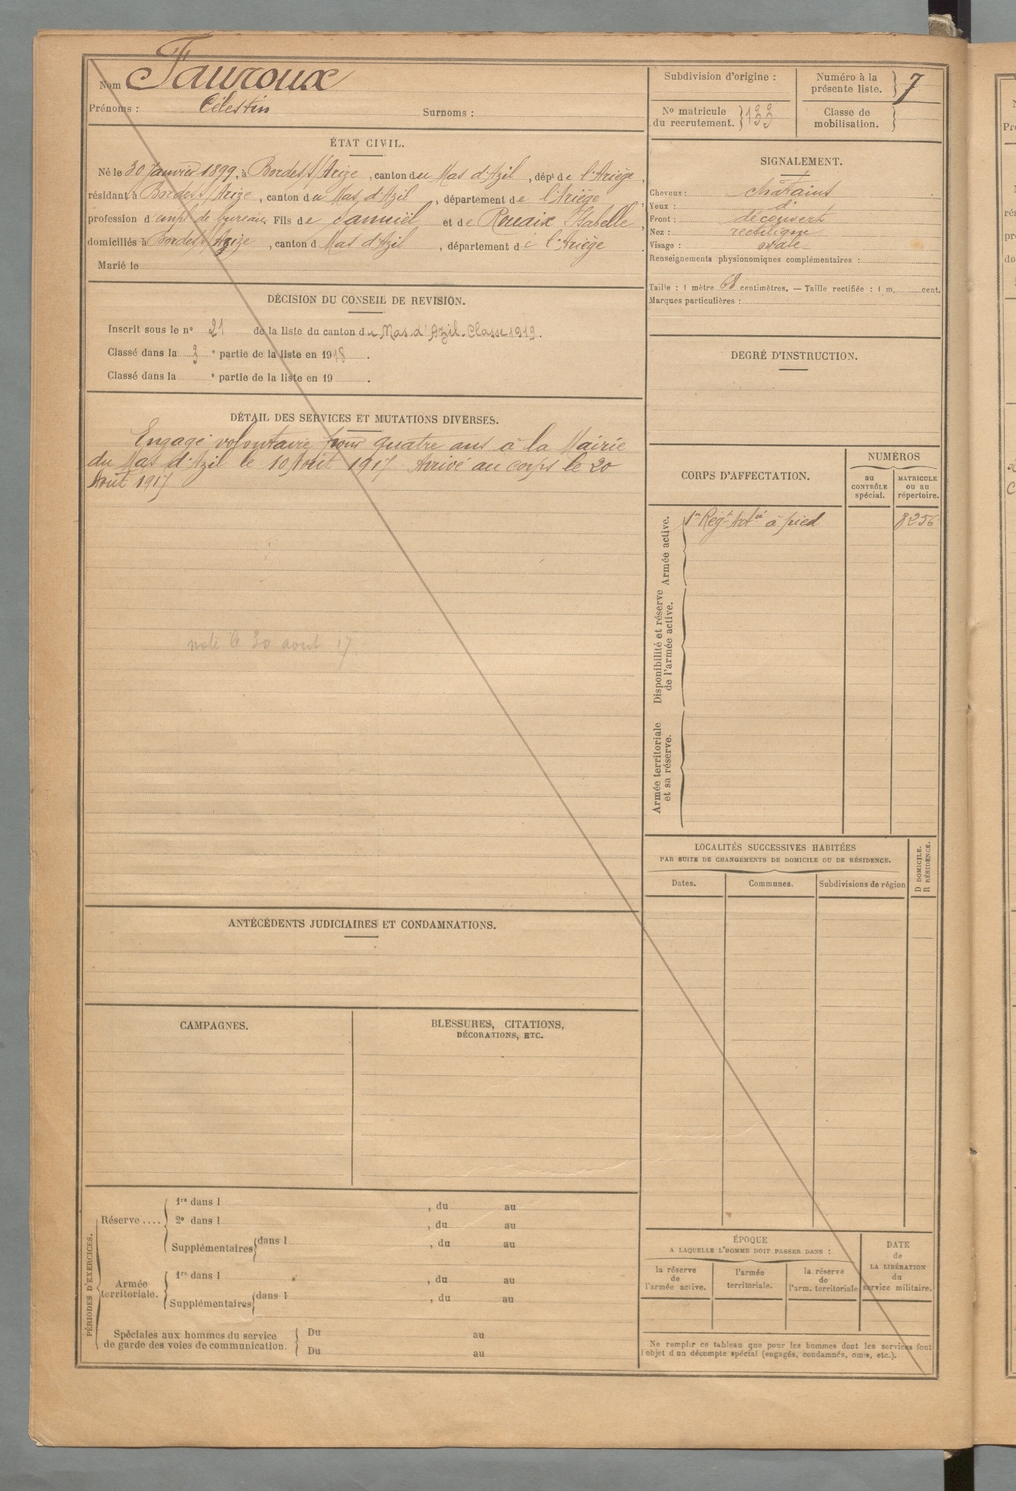 Nom Fauroux
Prénoms : Célestin Surnoms :
Subdivision d'origine :
Numéro à la présente liste. 7
No matricule du recrutement. 133
Classe de mobilisation.
ÉTAT CIVIL.
Né le 30 Janvier 1899, à Bordes s/ Arize, canton du Mas d'Azil, dépt de l'Ariège,
résidant à Bordes s/ Arize, canton du Mas d'Azil, département de l'Ariège
profession d'empl. de bureau Fils de Samuël et de Rouaix Isabelle
domiciliés à Bordes s/ Arize, canton d Mas d'Azil, département d l'Ariège
Marié le
SIGNALEMENT.
Cheveux : châtains
Yeux : d°
Front : découvert
Nez : rectiligne
Visage : ovale
Renseignements physionomiques complémentaires :
Taille : 1 mètre 68 centimètres. — Taille rectifiée : 1 m. cent.
Marques particulières :
DÉCISION DU CONSEIL DE REVISION.
Inscrit sous le n° 21 de la liste du canton du Mas d'Azil. Classe 1919.
Classé dans la 3 e partie de la liste en 1918.
Classé dans la e partie de la liste en 19 .
DEGRÉ D'INSTRUCTION.
DÉTAIL DES SERVICES ET MUTATIONS DIVERSES.
Engagé volontaire pour quatre ans à la Mairie
du Mas d'Azil le 10 Août 1917 Arrivé au corps le 20
Août 1917
noté le 30 aout 17.
CORPS D'AFFECTATION.
NUMÉROS
au CONTRÔLE spécial.
MATRICULE OU AU répertoire.
Armée active.
1er Régt Artie à pied 8256
Disponibilité et réserve de l'armée active.
Armée territoriale et sa réserve.
LOCALITÉS SUCCESSIVES HABITÉES
PAR SUITE DE CHANGEMENTS DE DOMICILE OU DE RÉSIDENCE.
Dates. Communes. Subdivisions de région
D DOMICILE.
R RÉSIDENCE.
ANTÉCÉDENTS JUDICIAIRES ET CONDAMNATIONS.
CAMPAGNES.
BLESSURES, CITATIONS,
DÉCORATIONS, ETC.
PÉRIODES D'EXERCICES.
Réserve ....
1re dans l , du au
2e dans l , du au
Supplémentaires dans l , du au
Armée territoriale.
1re dans l , du au
Supplémentaires dans l , du au
Spéciales aux hommes du service
de garde des voies de communication.
Du au
Du au
ÉPOQUE
A LAQUELLE L'HOMME DOIT PASSER DANS :
la réserve de l'armée active.
l'armée territoriale.
la réserve de l'arm. territoriale
DATE
de
LA LIBÉRATION
du
service militaire.
Ne remplir ce tableau que pour les hommes dont les services font
l'objet d'un décompte spécial (engagés, condamnés, omis, etc.).